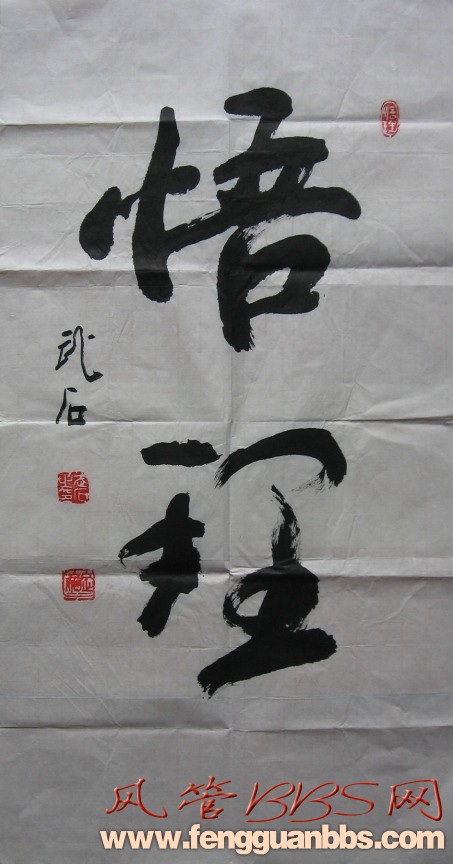 悟理
石
风管BBS网
www.fengguanbbs.com